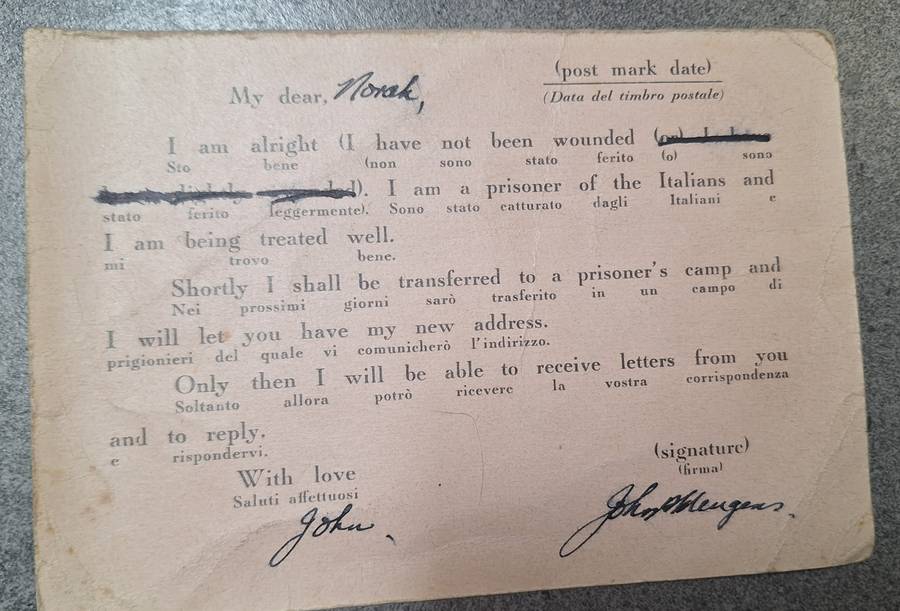 (post mark date)
My dear, Norah,
(Data del timbro postale)
I am alright (I have not been wounded (or) I have
Sto bene (non sono stato ferito (o) sono
been slightly wounded). I am a prisoner of the Italians and
stato ferito leggermente). Sono stato catturato dagli Italiani e
I am being treated well.
mi trovo bene.
Shortly I shall be transferred to a prisoner's camp and
Nei prossimi giorni sarò trasferito in un campo di
I will let you have my new address.
prigionieri del quale vi comunicherò l'indirizzo.
Only then I will be able to receive letters from you
Soltanto allora potrò ricevere la vostra corrispondenza
and to reply.
e rispondervi.
With love
Saluti affettuosi
(signature)
(firma)
John.
John